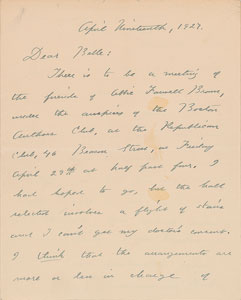 April Nineteenth, 1927.
Dear Balls:
There is to be a meeting
of the friends of Abbie Farwell Brown,
under the auspices of the Boston
Authors Club, at the Republican
Club, 46 Beacon Street, on Friday
April 29th at half past four. I
had hoped to go, but the hall
selected involves a flight of stairs
and I can't get my doctor's consent.
I think that the arrangements are
more or less in charge of